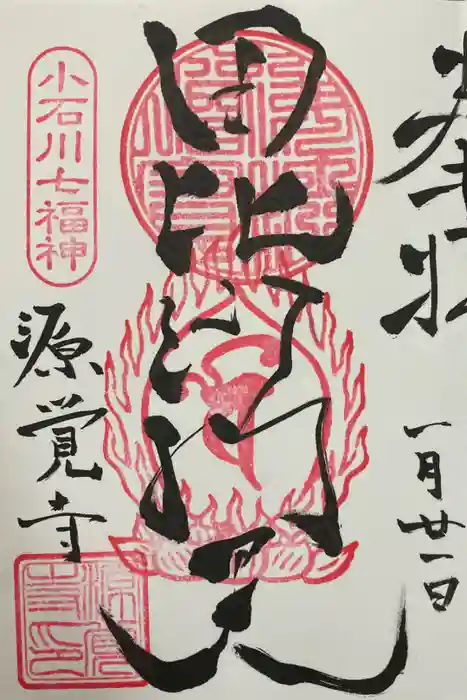 奉拝
一月廿一日
毘沙門天
小石川七福神
源覚寺